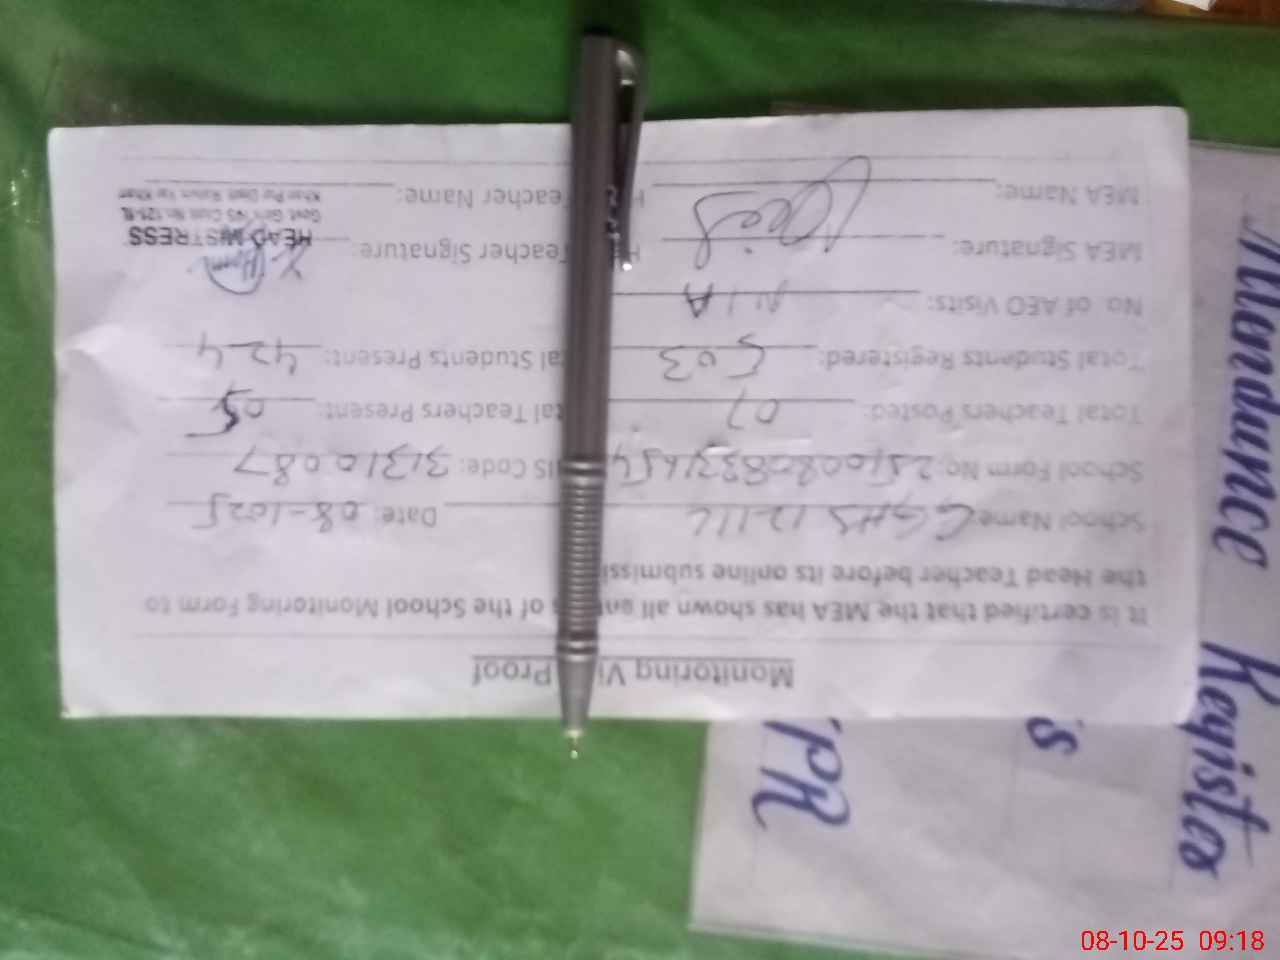 Monitoring Vi Proof
It is certified that the MEA has shown all en s of the School Monitoring Form to
the Head Teacher before its online submissi
School Name: GGHS 121 1L Date: 08-1025
School Form No: IS Code: 31310087
Total Teachers Posted: 07 tal Teachers Present: 05
Total Students Registered: 503 tal Students Present: 424
No. of AEO Visits: N/A
MEA Signature: He Teacher Signature:
HEAD MISTRESS
MEA Name: H Teacher Name:
Attendance Register
TPR
08-10-25 09:18